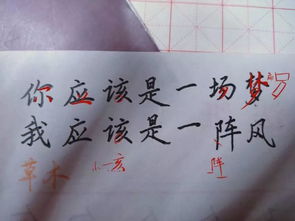 你应该是一场梦
我应该是一阵风
草木
亥
阵